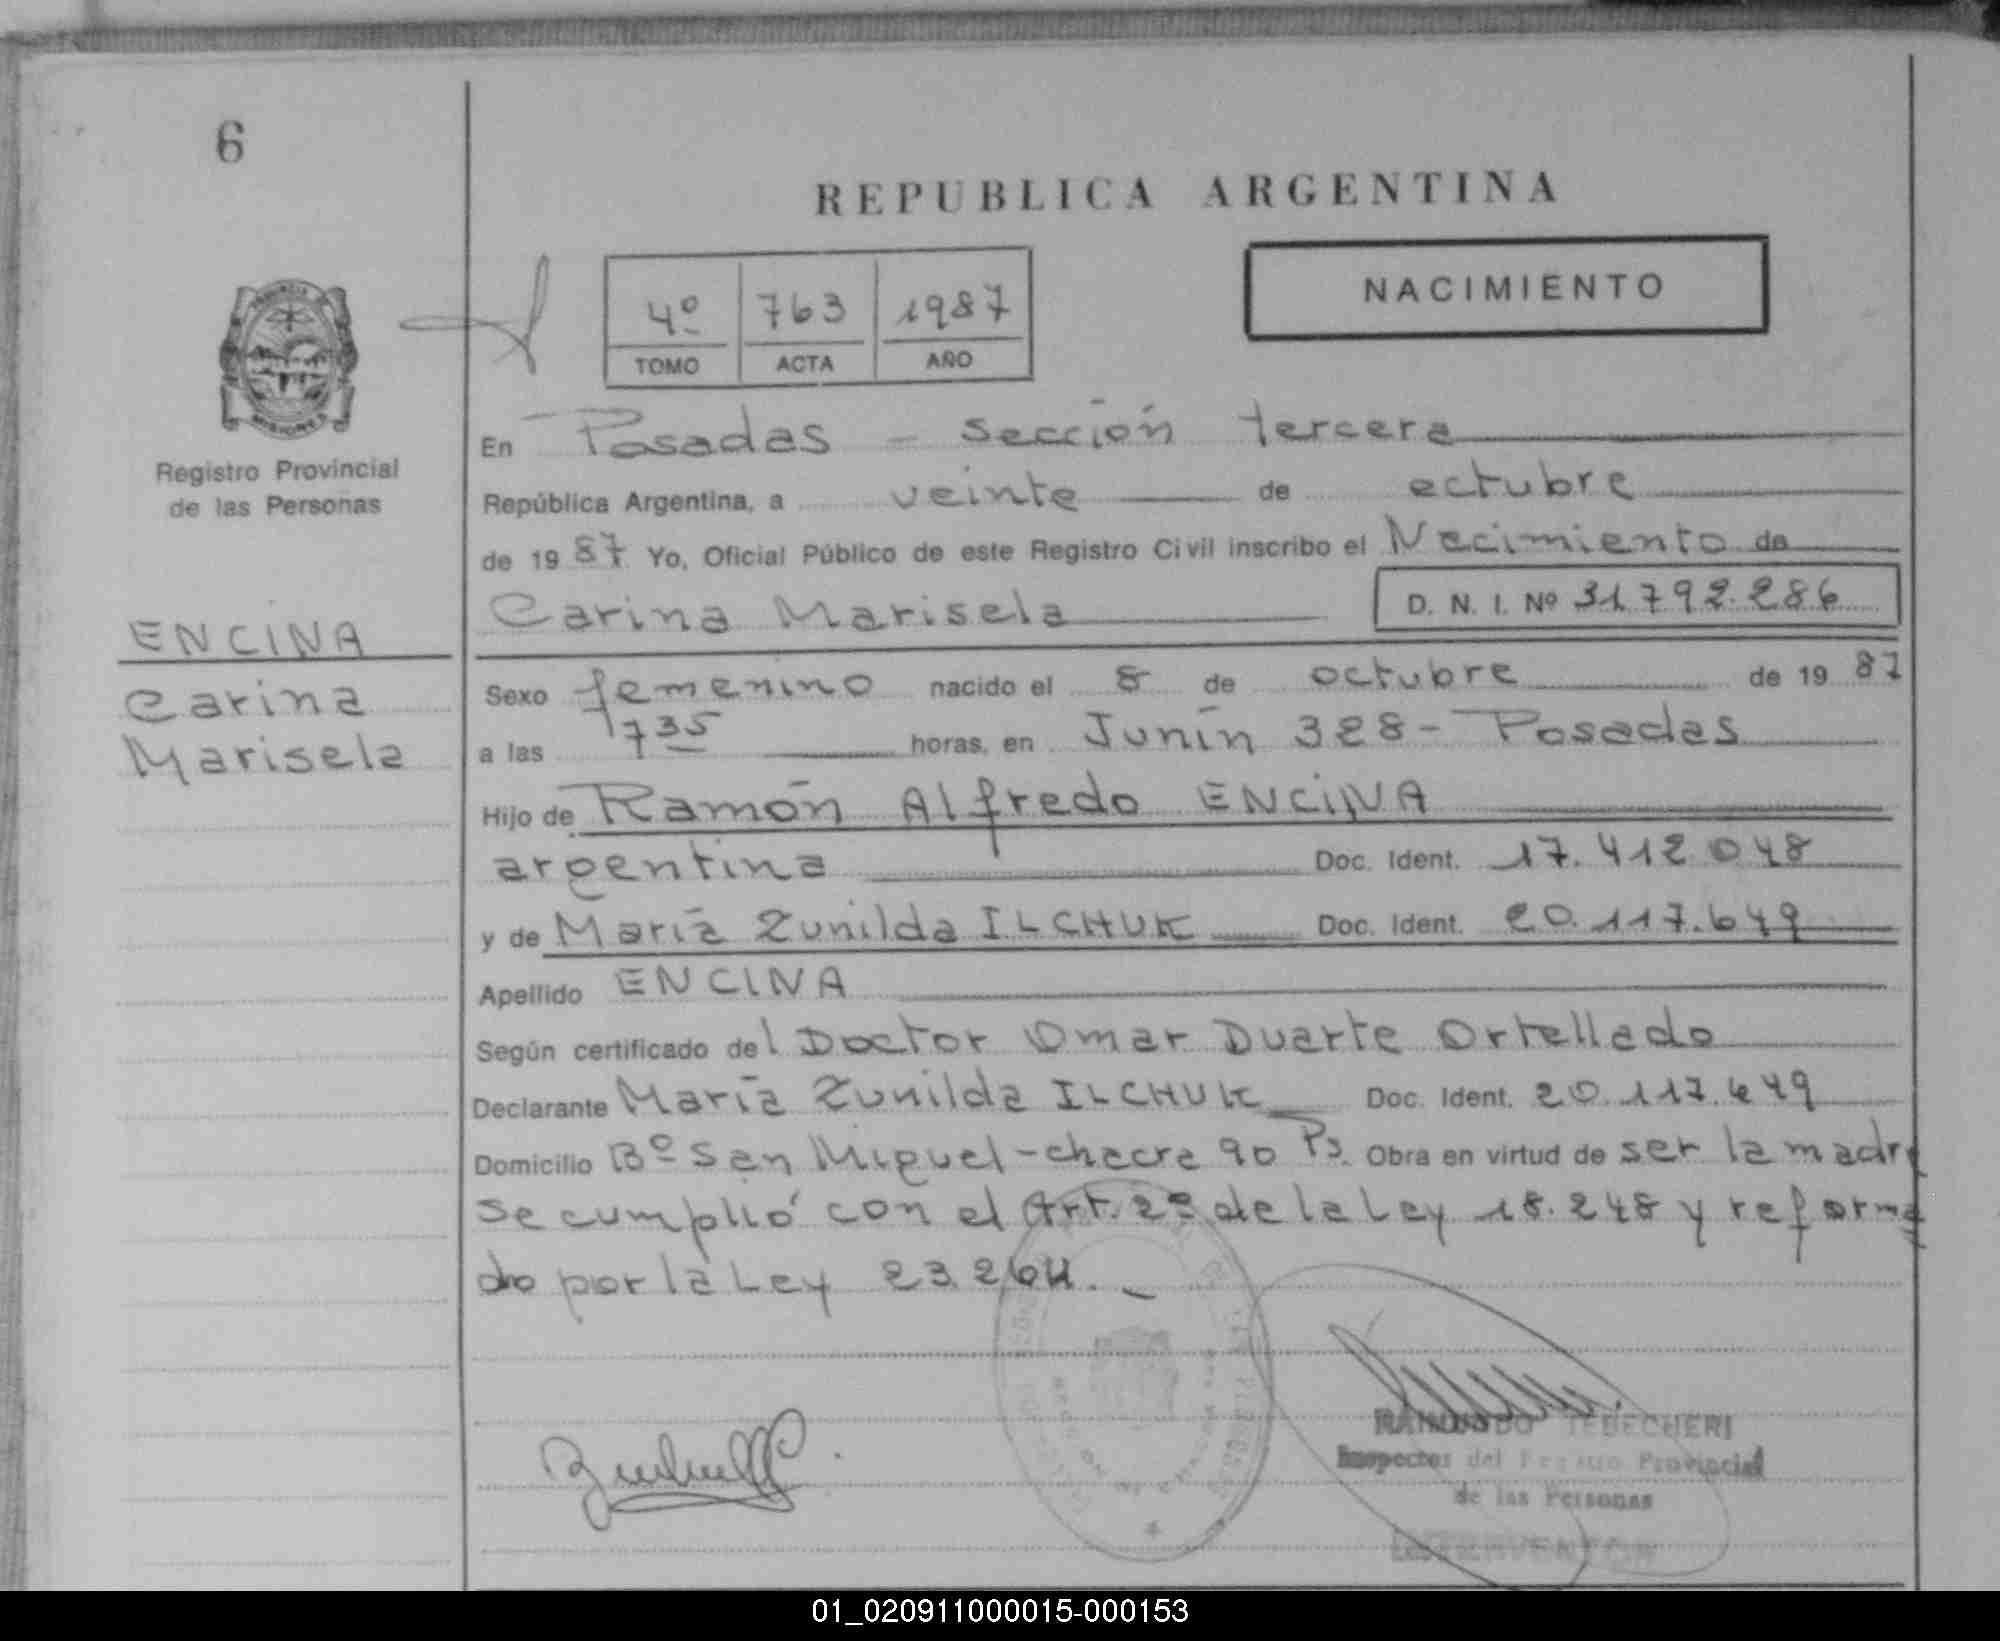 6
REPUBLICA ARGENTINA
NACIMIENTO
4º 763 1987
TOMO ACTA AÑO
Registro Provincial
de las Personas
ENCINA
Carina
Marisela
En Posadas - Sección tercera
República Argentina, a veinte de octubre
de 19 87 Yo, Oficial Público de este Registro Civil inscribo el Nacimiento de
Carina Marisela D. N. I. Nº 31.792.286
Sexo femenino nacido el 8 de octubre de 19 87
a las 7 35 horas, en Junín 328 - Posadas
Hijo de Ramón Alfredo ENCINA
argentina Doc. Ident. 17.412.048
y de María Zunilda ILCHUK Doc. Ident. 20.117.649
Apellido ENCINA
Según certificado del Doctor Omar Duarte Ortellado
Declarante María Zunilda ILCHUK Doc. Ident. 20.117.649
Domicilio Bº San Miguel - chacra 90 Ps. Obra en virtud de ser la madre
se cumplió con el Art. 2º de la Ley 18.248 y reforma
do por la Ley 23.264.
TEBECHERI
Inspector del Registro Provincial
de las Personas
INTERVENTOR
01_020911000015-000153